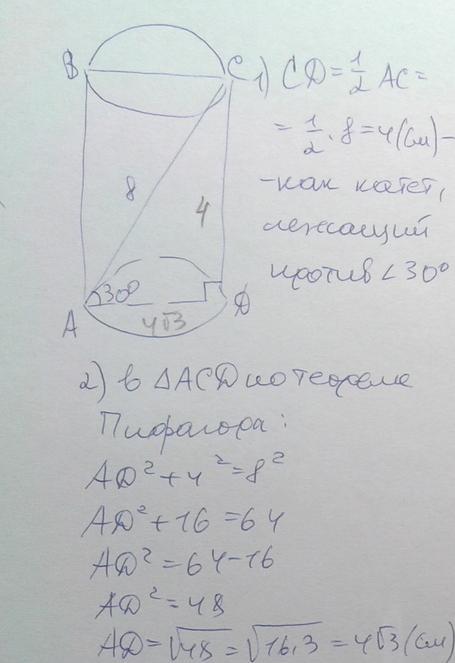 B
C
1) CD = 1/2 AC =
= 1/2 · 8 = 4 (см) –
– как катет,
лежащий
против ∠30°
8
4
30°
A
D
4√3
2) в △ACD по теореме
Пифагора:
AD² + 4² = 8²
AD² + 16 = 64
AD² = 64 – 16
AD² = 48
AD = √48 = √16·3 = 4√3 (см)